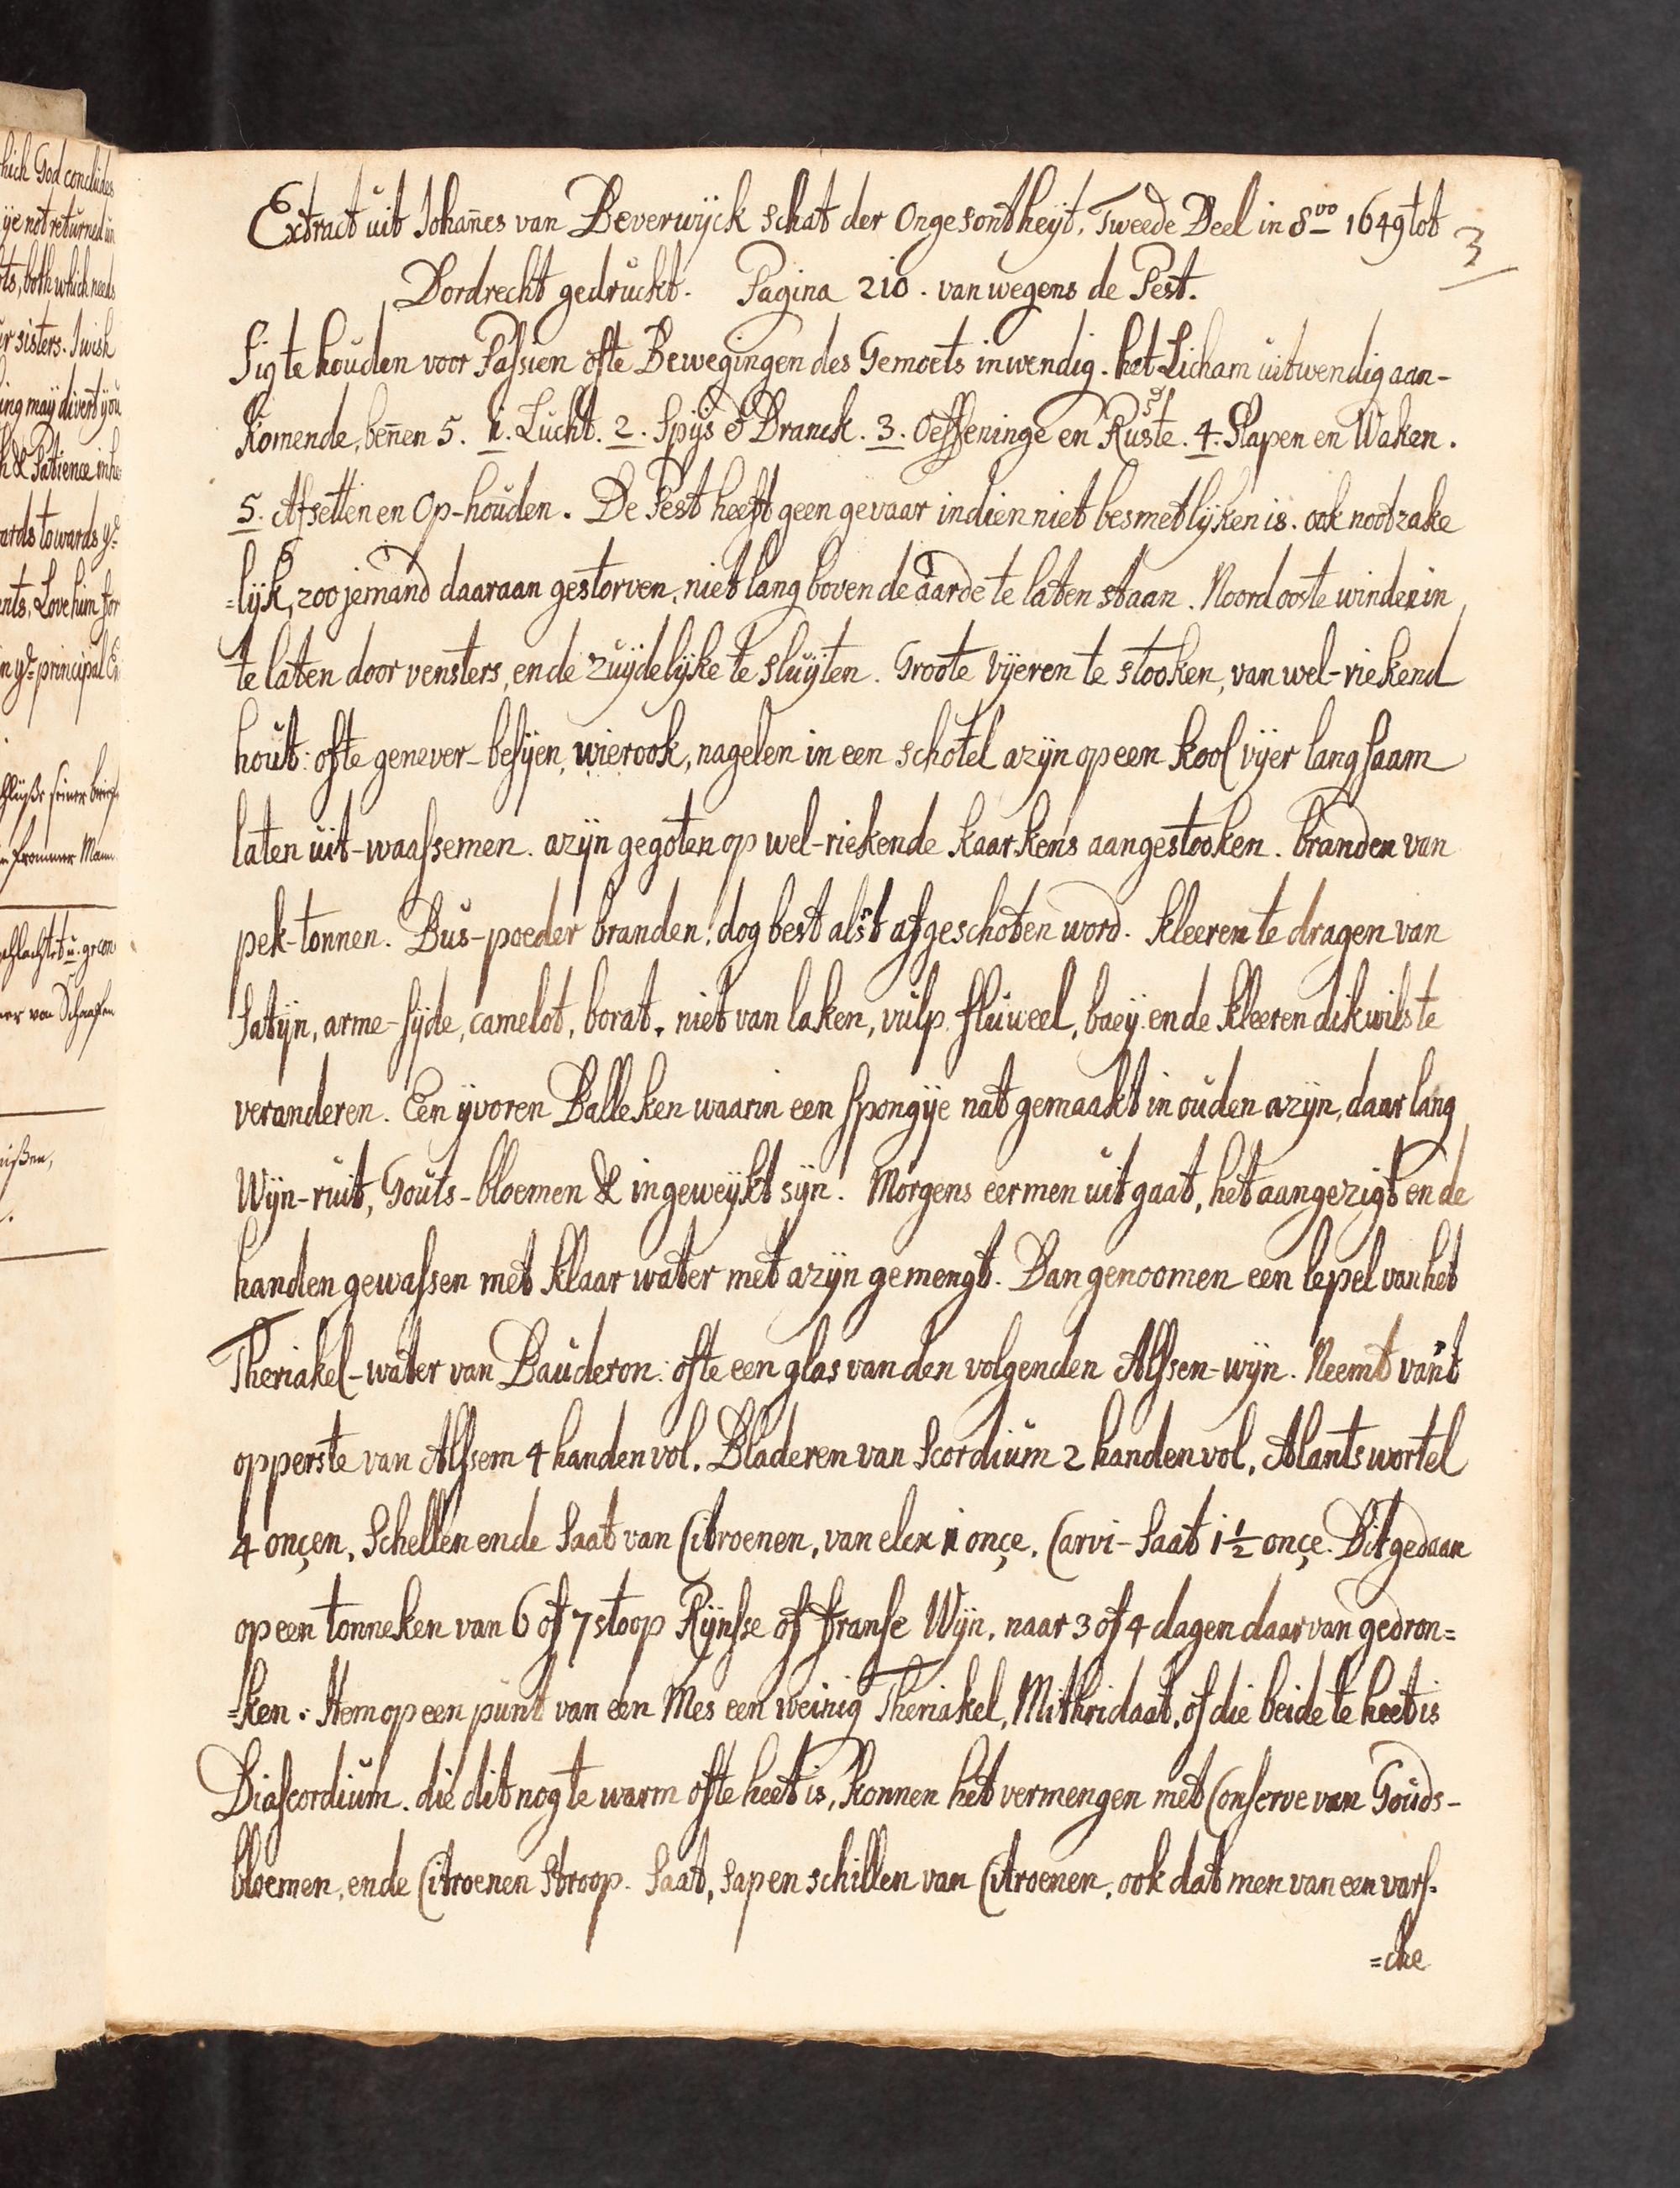 Extract uit Johan̄es van Beverwÿck schat der Ongesontheÿt, Tweede Deel in 8vo 1649 tot
3
Dordrecht gedruckt. Pagina 210. van wegens de Pest.
Sig te houden voor Passien ofte Bewegingen des Gemoets inwendig. het Licham uitwendig aan-
komende, ben̄en 5. 1. Lucht. 2. Spÿs & Dranck. 3. Oeffeninge en Ruste. 4. Slapen en Waken.
5. Afsetten en Op-houden. De Pest heeft geen gevaar indien niet besmetlÿken is. ook nootzake
=lÿk, zoo jemand daaraan gestorven, niet lang boven de aarde te laten staan. Noord ooste winden in
te laten door vensters, ende zuÿdelÿke te sluÿten. Groote vÿeren te stooken, van wel-riekend
hout: ofte genever-besÿen, wierook, nagelen in een schotel azÿn op een kool vÿer langsaam
laten uit-waassemen. azÿn gegoten op wel-riekende kaarkens aangestooken. branden van
pek-tonnen. Bus-poeder branden! dog best als't afgeschoten word. kleeren te dragen van
Satÿn, arme-sÿde, camelot, borat, niet van laken, vulp, fluweel, baeÿ. ende kleeren dikwils te
veranderen. Een ÿvoren Balleken waarin een spongÿe nat gemaakt in ouden azÿn, daar lang
Wÿn-ruit, Gouts-bloemen & ingeweÿkt sÿn. Morgens eer men uit gaat, het aangezigt ende
handen gewassen met klaar water met azÿn gemengt. Dan genoomen een lepel van het
Theriakel-water van Bauderon: ofte een glas van den volgenden Alssen-wÿn. Neemt van't
opperste van Alssem 4 handen vol. Bladeren van Scordium 2 handen vol, Alants wortel
4 onçen, Schellen ende Saat van Citroenen, van elcx 1 onçe, Carvi-Saat 1 1/2 onçe. Dit gedaan
op een tonneken van 6 of 7 stoop Rÿnsse of franse Wÿn, naar 3 of 4 dagen daar van gedron=
=ken. Item op een punt van een Mes een weinig Theriakel, Mithridaat, of die beide te heet is
Diascordium. die dit nog te warm ofte heet is, konnen het vermengen met Conserve van Gouds-
bloemen, ende Citroenen stroop. Saat, sap en schillen van Citroenen, ook dat men van een vars-
=che